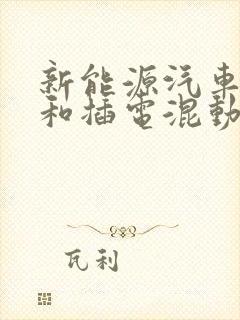 新能源汽車
和插電混動
瓦利